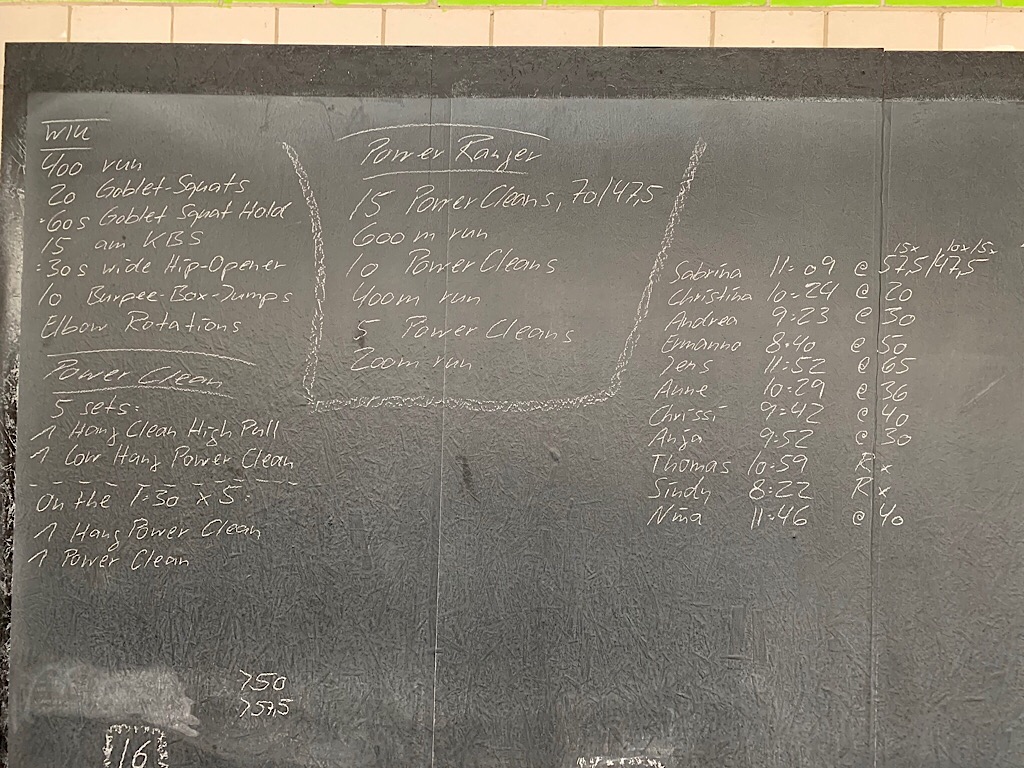 400 run
20 Goblet-Squats
60s Goblet Squat Hold
15 am KBS
30s wide Hip-Opener
10 Burpee-Box-Jumps
Elbow Rotations
Power Clean
5 sets:
1 Hang Clean High Pull
1 Low Hang Power Clean
On the 1:30 x 5:
1 Hang Power Clean
1 Power Clean
>50
>57,5
16
Power Ranger
15 Power Cleans, 70/47,5
600 m run
10 Power Cleans
400m run
5 Power Cleans
200m run
15x 10x/5x
Sabrina 11:09 @ 57,5/47,5
Christina 10:24 @ 20
Andrea 9:23 @ 30
Ermanno 8:40 @ 50
Jens 11:52 @ 65
Anne 10:29 @ 36
Chrissi 9:42 @ 40
Anja 9:52 @ 30
Thomas 10:59 Rx
Sindy 8:22 Rx
Nina 11:46 @ 40